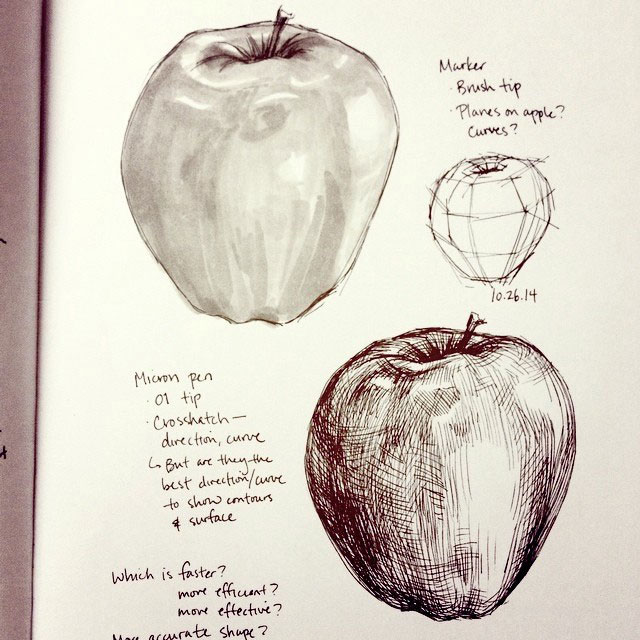 Marker
· Brush tip
· Planes on apple?
Curves?
10.26.14
Micron pen
· 01 tip
· Crosshatch —
direction, curve
↳ But are they the
best direction/curve
to show contours
& surface
Which is faster?
more efficient?
more effective?
More accurate shape?